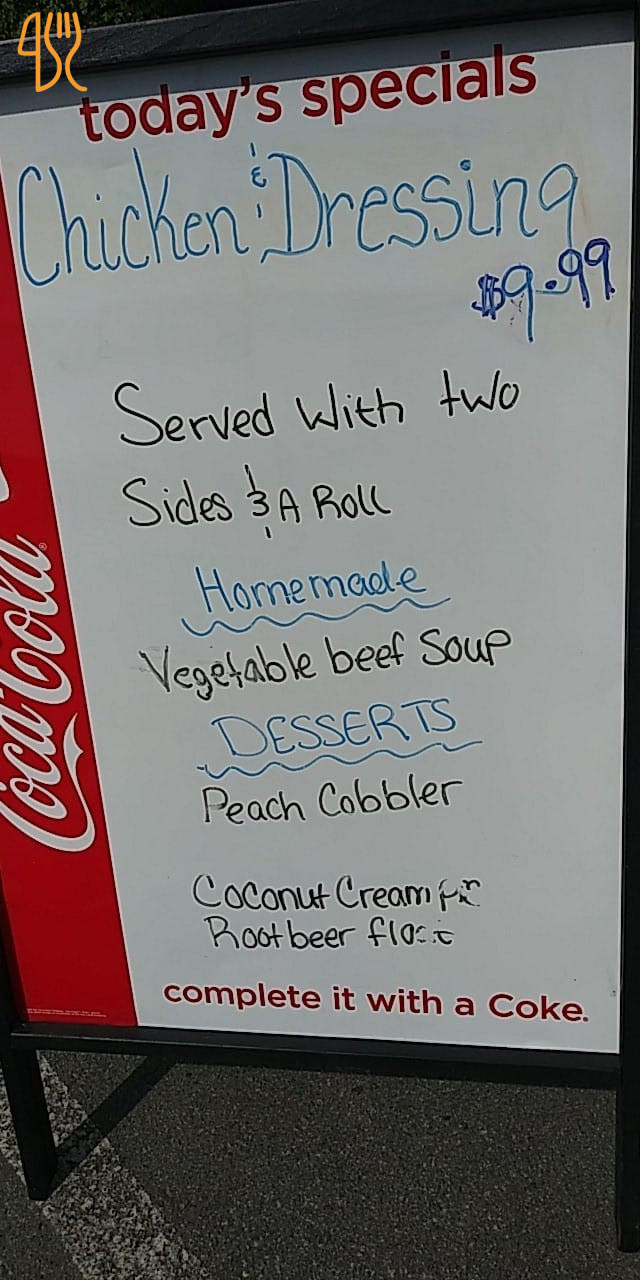 today's specials
Chicken & Dressing
$9.99
Served With two
Sides & A Roll
Homemade
Vegetable beef Soup
DESSERTS
Peach Cobbler
Coconut Cream
Rootbeer
complete it with a Coke.
Coca-Cola